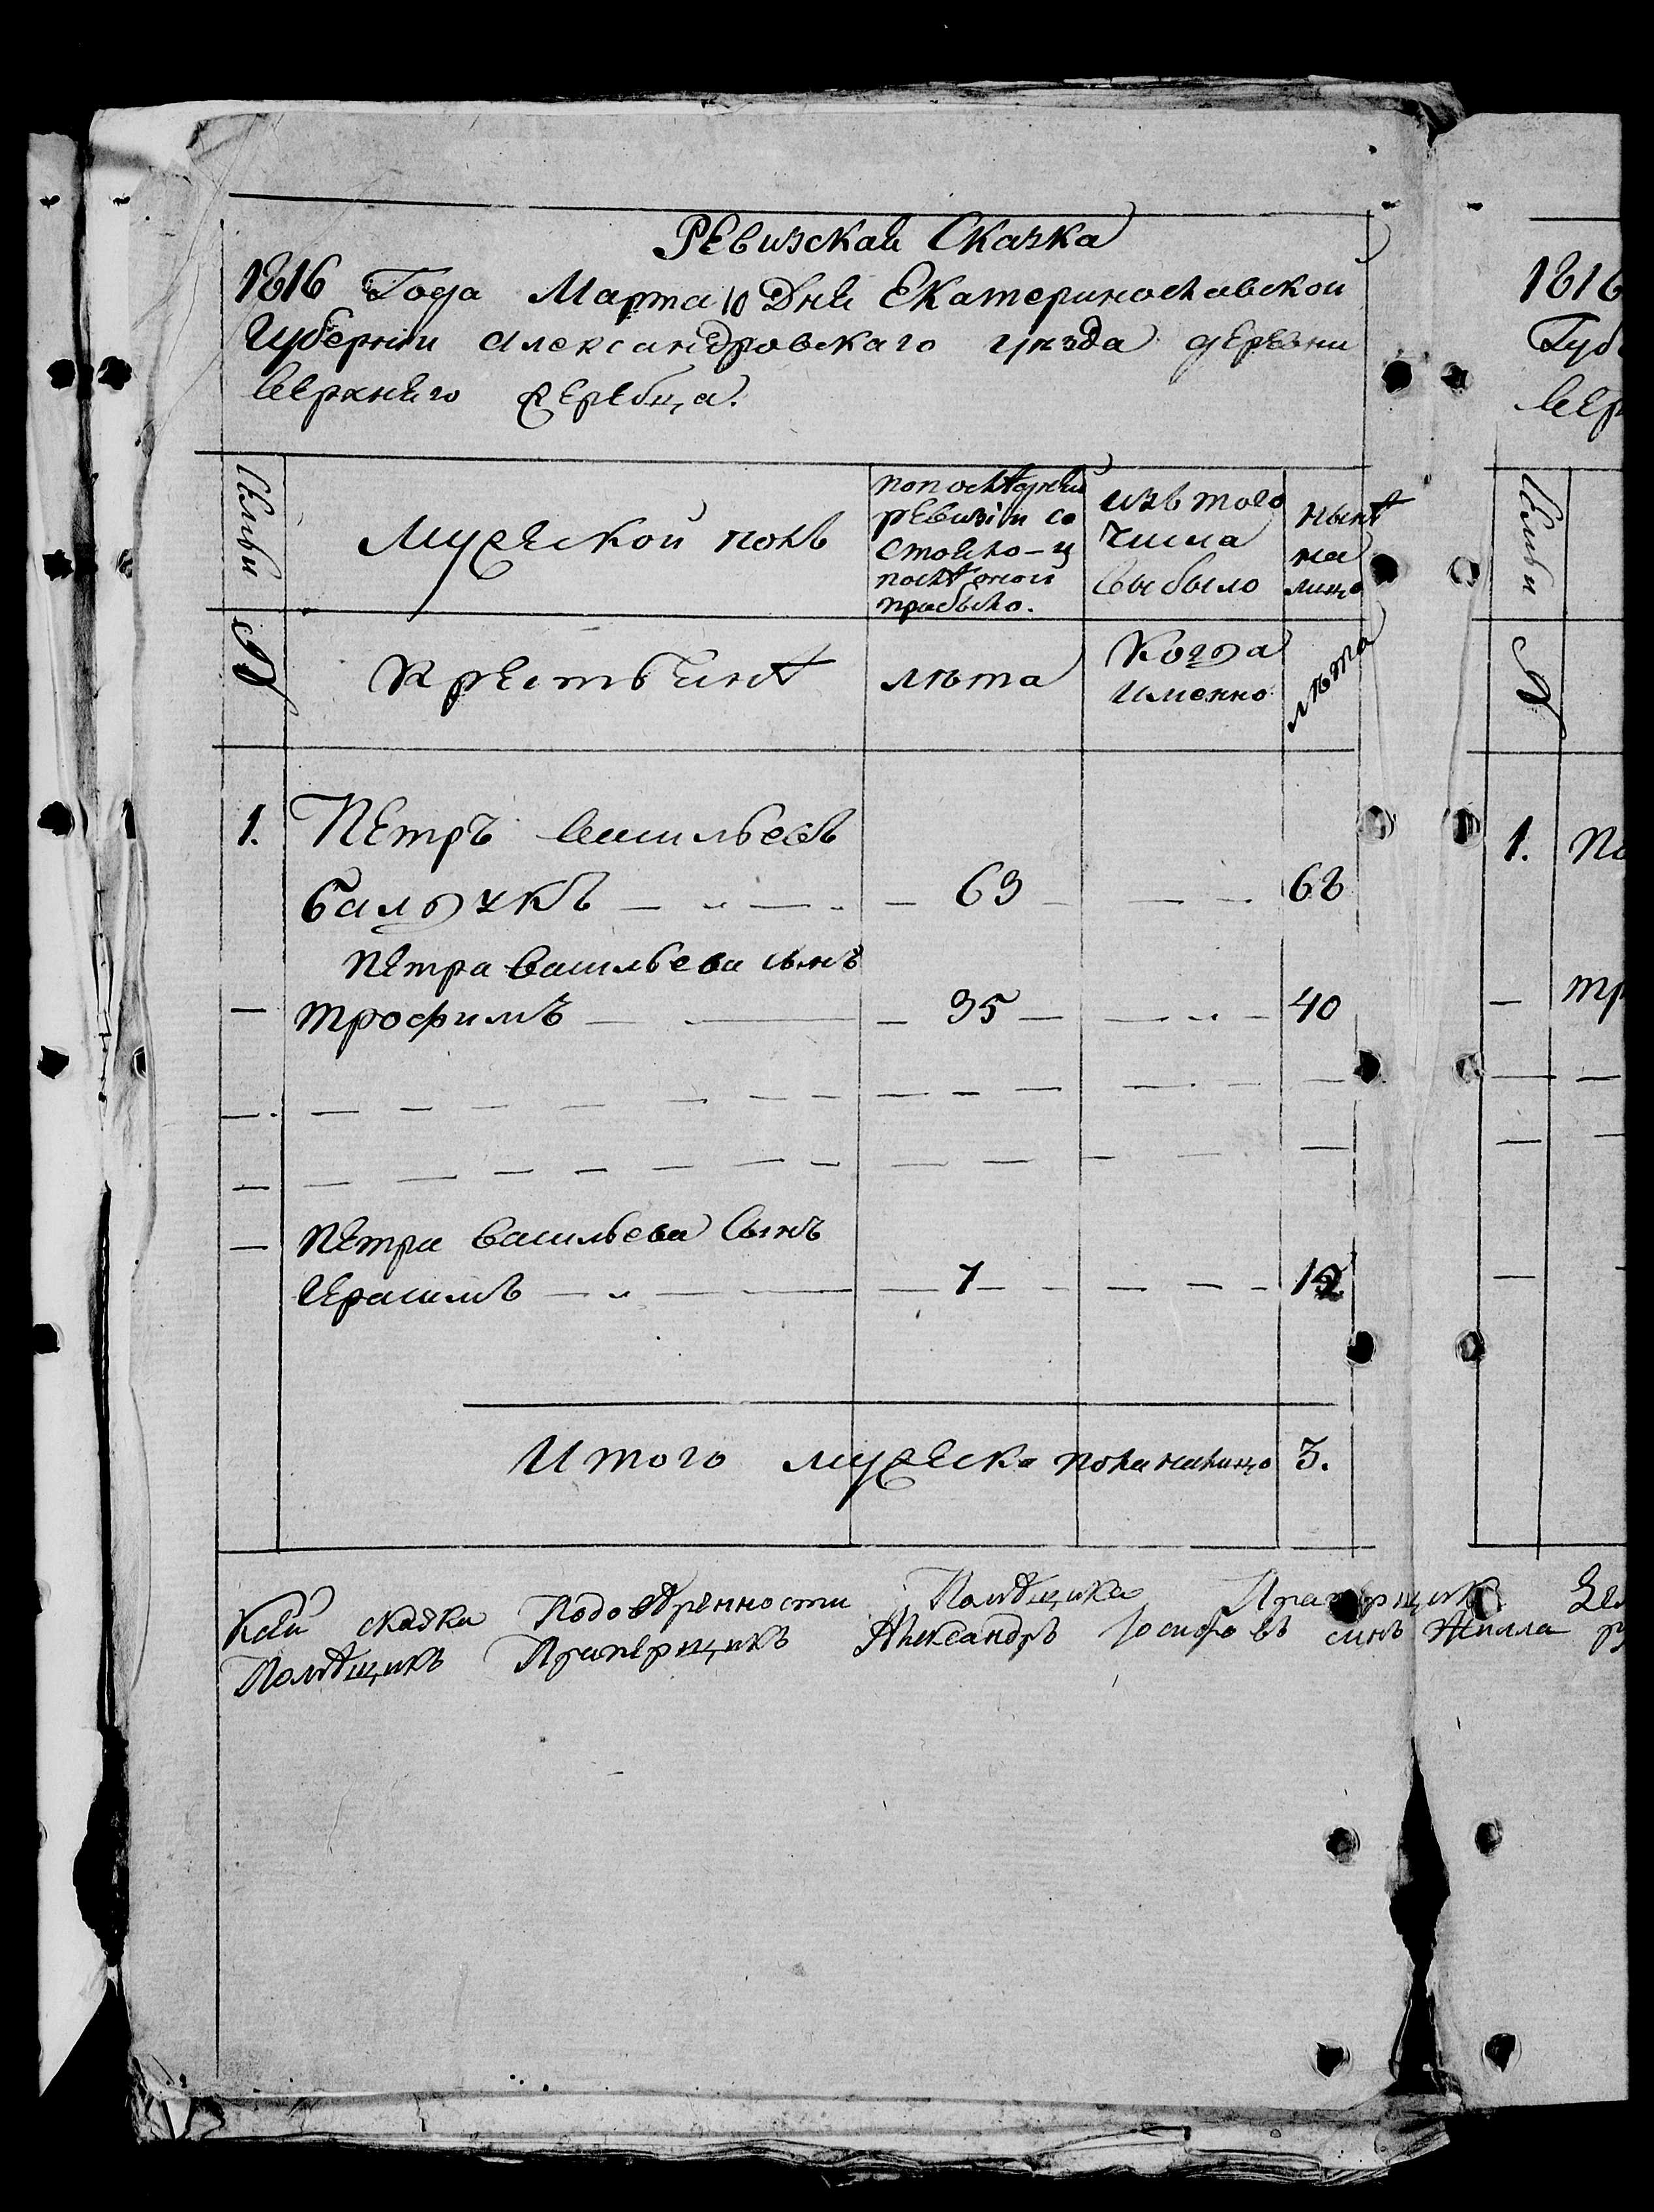 Ревизская Сказка
1816 Года Марта 10 Дня Екатеринославской
Губернии Александровскаго уѣзда деревни
верхняго жеребца.
Семьи
Мужеской полъ
по послѣдней
ревизіи со
стояло – и
послѣ оной
прибыло.
изъ того
числа
выбыло
нынѣ
на
лицо
№
Крестьянѣ
лѣта
Когда
именно
лѣта
1. Петръ васильевъ
63 68
Петра васильева сынъ
трофимъ 35 40
Петра васильева сынъ
Герасимъ 7 12
Итого мужеска пола налицо 3.
сказка Подовѣренности Помѣщика Прапорщик
Помѣщикъ Прапорщикъ Александръ Іосифовъ синъ
1816
Губ
вер
Семьи
№
1. По
тр